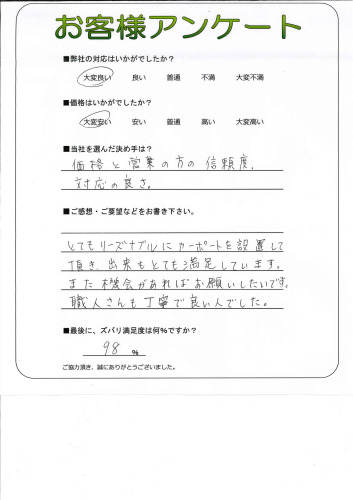 お客様アンケート
■弊社の対応はいかがでしたか？
大変良い 良い 普通 不満 大変不満
■価格はいかがでしたか？
大変安い 安い 普通 高い 大変高い
■当社を選んだ決め手は？
価格と営業の方の信頼度、
対応の良さ。
■ご感想・ご要望などをお書き下さい。
とてもリーズナブルにカーポートを設置して
頂き、出来もとても満足しています。
また機会があればお願いしたいです。
職人さんも丁寧で良い人でした。
■最後に、ズバリ満足度は何%ですか？
98 %
ご協力頂き、誠にありがとうございました。